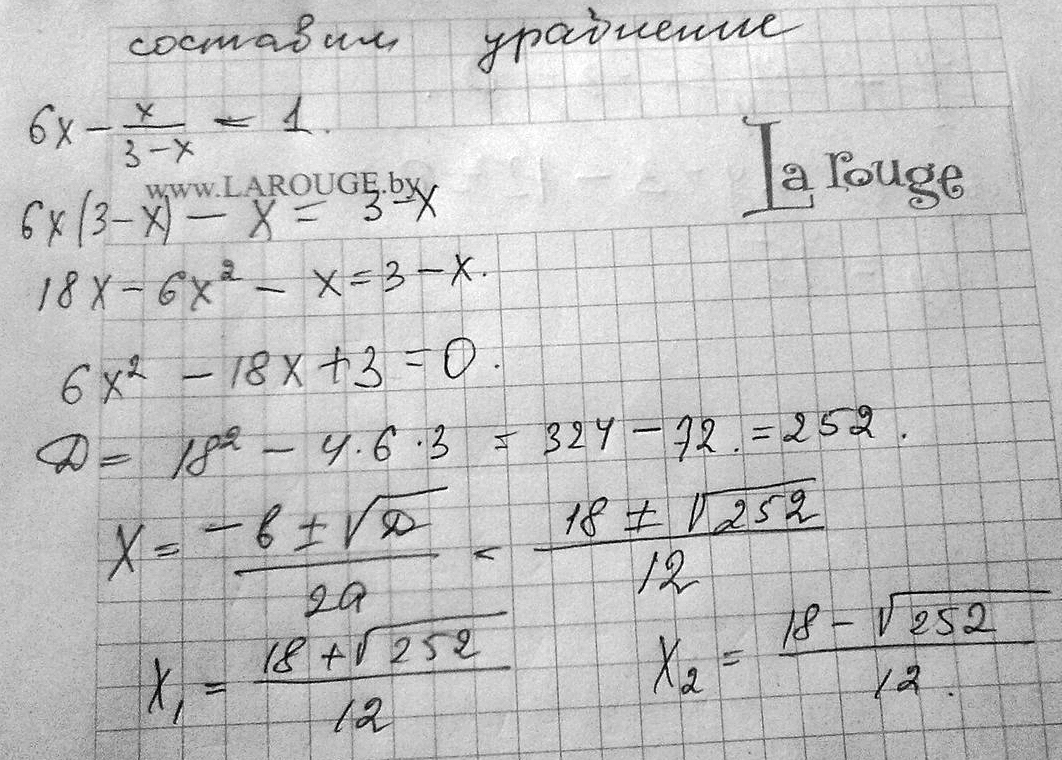 составим уравнение
6x - x/(3-x) = 1.
La rouge
www.LAROUGE.by
6x(3-x) - x = 3-x
18x - 6x² - x = 3 - x.
6x² - 18x + 3 = 0.
D = 18² - 4·6·3 = 324 - 72. = 252.
x = (-b ± √D)/(2a) = (18 ± √252)/12
x₁ = (18 + √252)/12    x₂ = (18 - √252)/12.